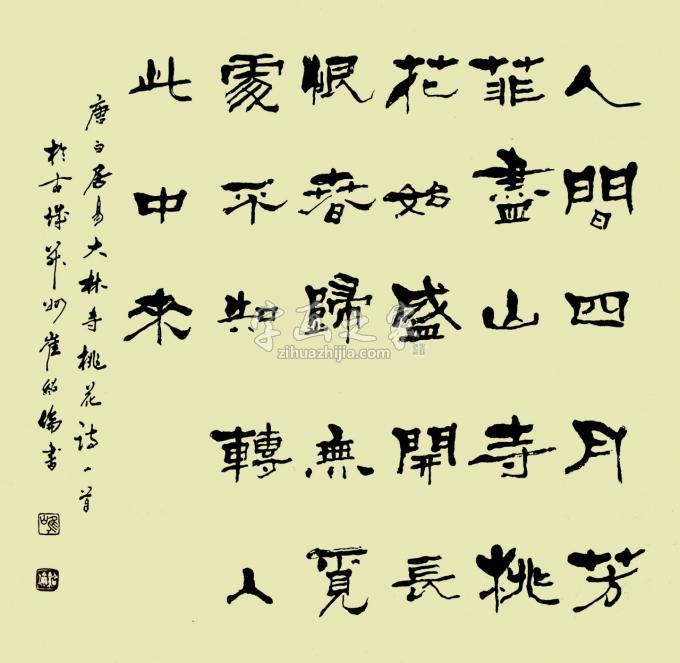 人間四月芳
菲盡山寺桃
花始盛開長
恨春歸無覓
處不知轉入
此中來
唐白居易大林寺桃花詩一首
於古城并州崔書
字画之家
zihuazhijia.com